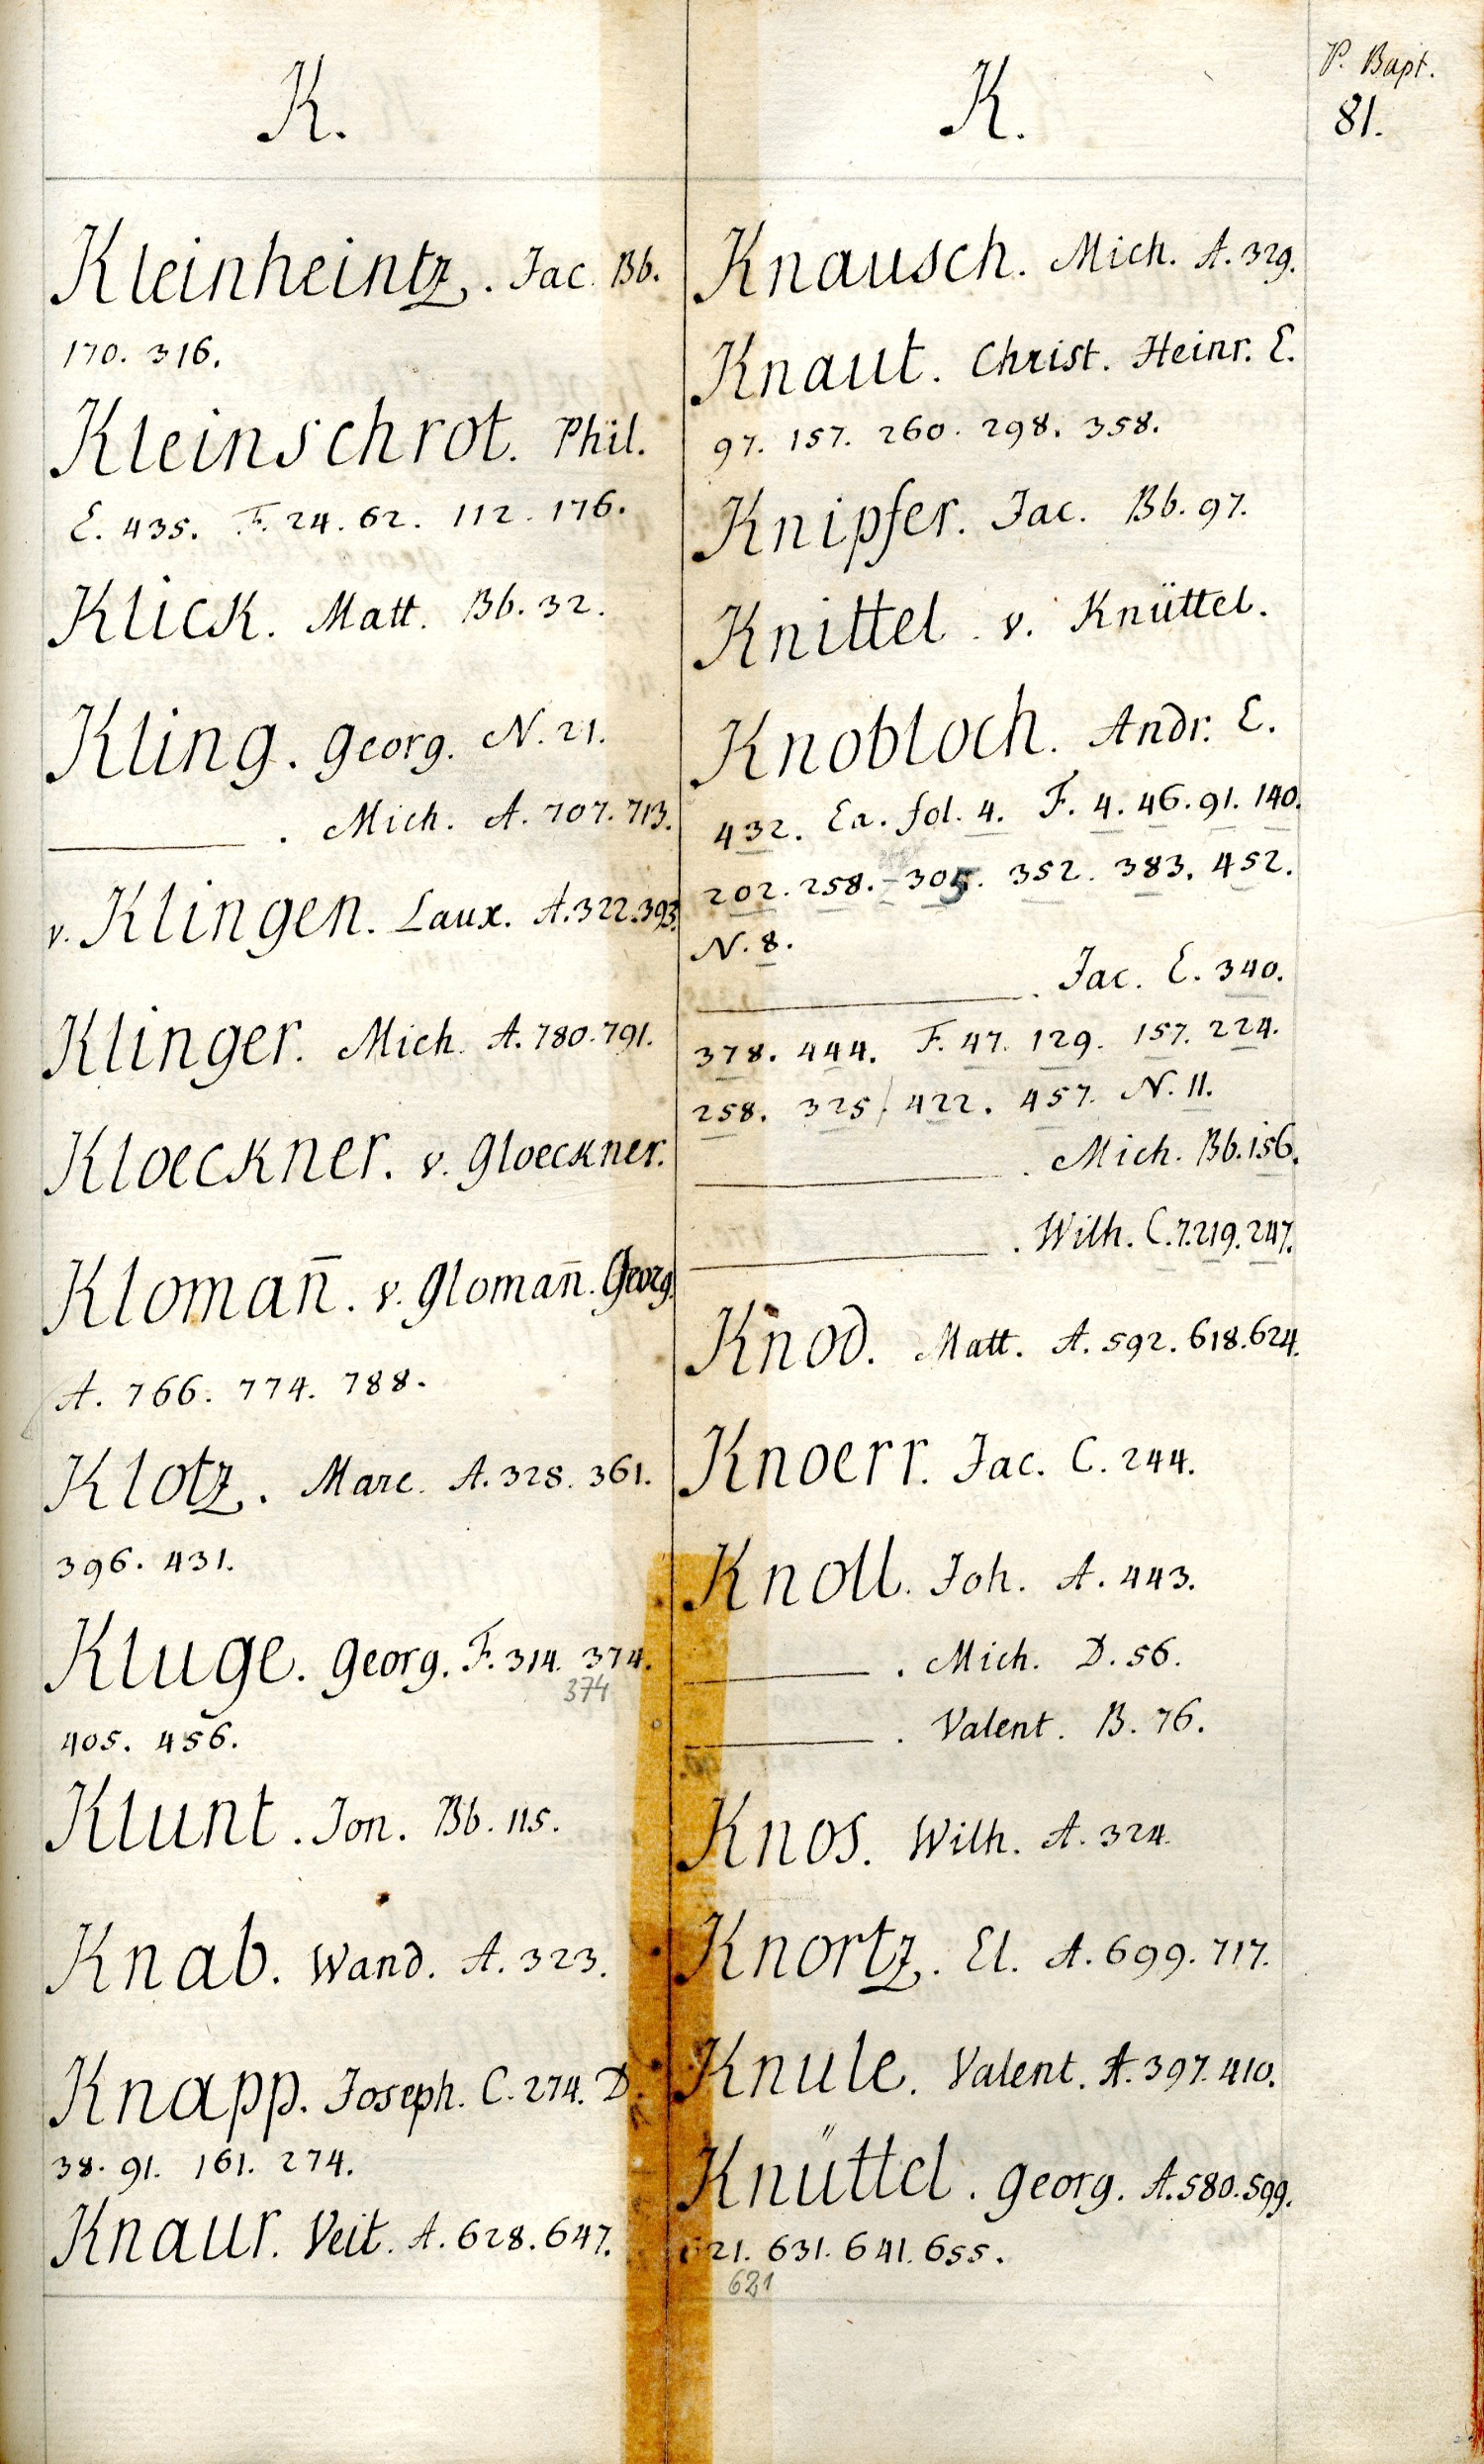 P. Bapt.
81.
K.
Kleinheintz. Jac. Bb.
170. 316.
Kleinschrot. Phil.
E. 435. F. 24. 62. 112. 176.
Klick. Matt. Bb. 32.
Kling. Georg. N. 21.
. Mich. A. 707. 713.
v. Klingen. Laux. A. 322. 393.
Klinger. Mich. A. 780. 791.
Kloeckner. v. Gloeckner.
Klomañ. v. Glomañ. Georg.
A. 766. 774. 788.
Klotz. Marc. A. 328. 361.
396. 431.
Kluge. Georg. F. 314. 374.
374
405. 456.
Klunt. Jon. Bb. 115.
Knab. Wand. A. 323.
Knapp. Joseph. C. 274. D.
38. 91. 161. 274.
Knaur. Veit. A. 628. 647.
K.
Knausch. Mich. A. 329.
Knaut. Christ. Heinr. E.
97. 157. 260. 298. 358.
Knipfer. Jac. Bb. 97.
Knittel. v. Knüttel.
Knobloch. Andr. E.
432. Ea. fol. 4. F. 4. 46. 91. 140.
202. 258. 305. 352. 383. 452.
N. 8.
. Jac. E. 340.
378. 444. F. 47. 129. 157. 224.
258. 325. 422. 457. N. 11.
. Mich. Bb. 156.
. Wilh. C. 7. 219. 247.
Knod. Matt. A. 592. 618. 624.
Knoerr. Jac. C. 244.
Knoll. Joh. A. 443.
. Mich. D. 56.
. Valent. B. 76.
Knos. Wilh. A. 324.
Knortz. El. A. 699. 717.
Knule. Valent. A. 397. 410.
Knüttel. Georg. A. 580. 599.
621. 631. 641. 655.
621